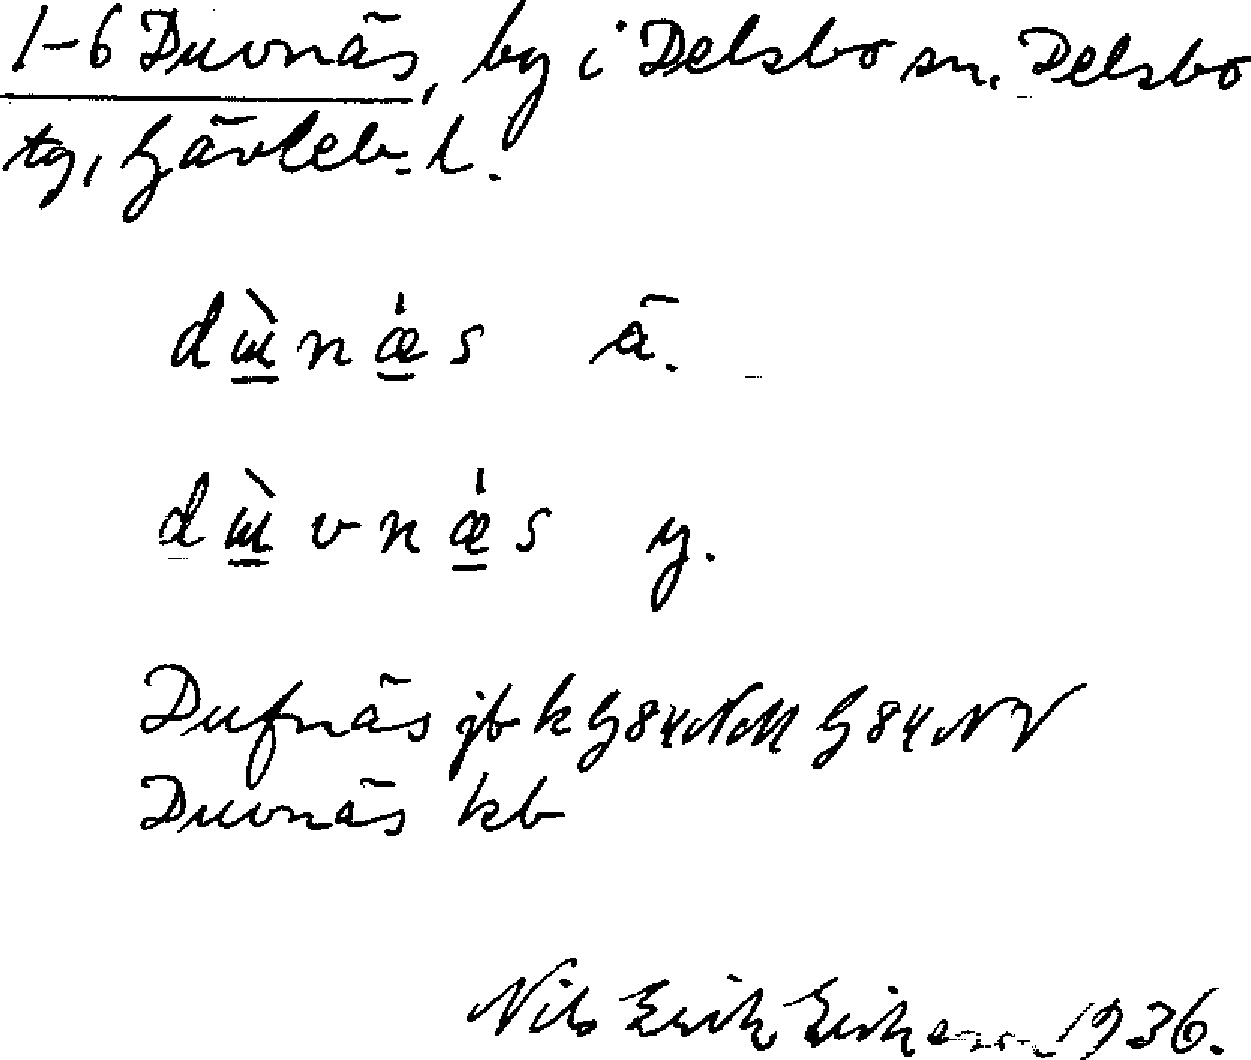 1-6 Duvnäs, by i Delsbo sn. Delsbo
tg, Gävleb. l.
dɯ̀næ̍s ä.
dɯ̀vnæ̍s y.
Dufnäs jb k G84NM G84NV
Duvnäs kb
Nils Erik 1936.